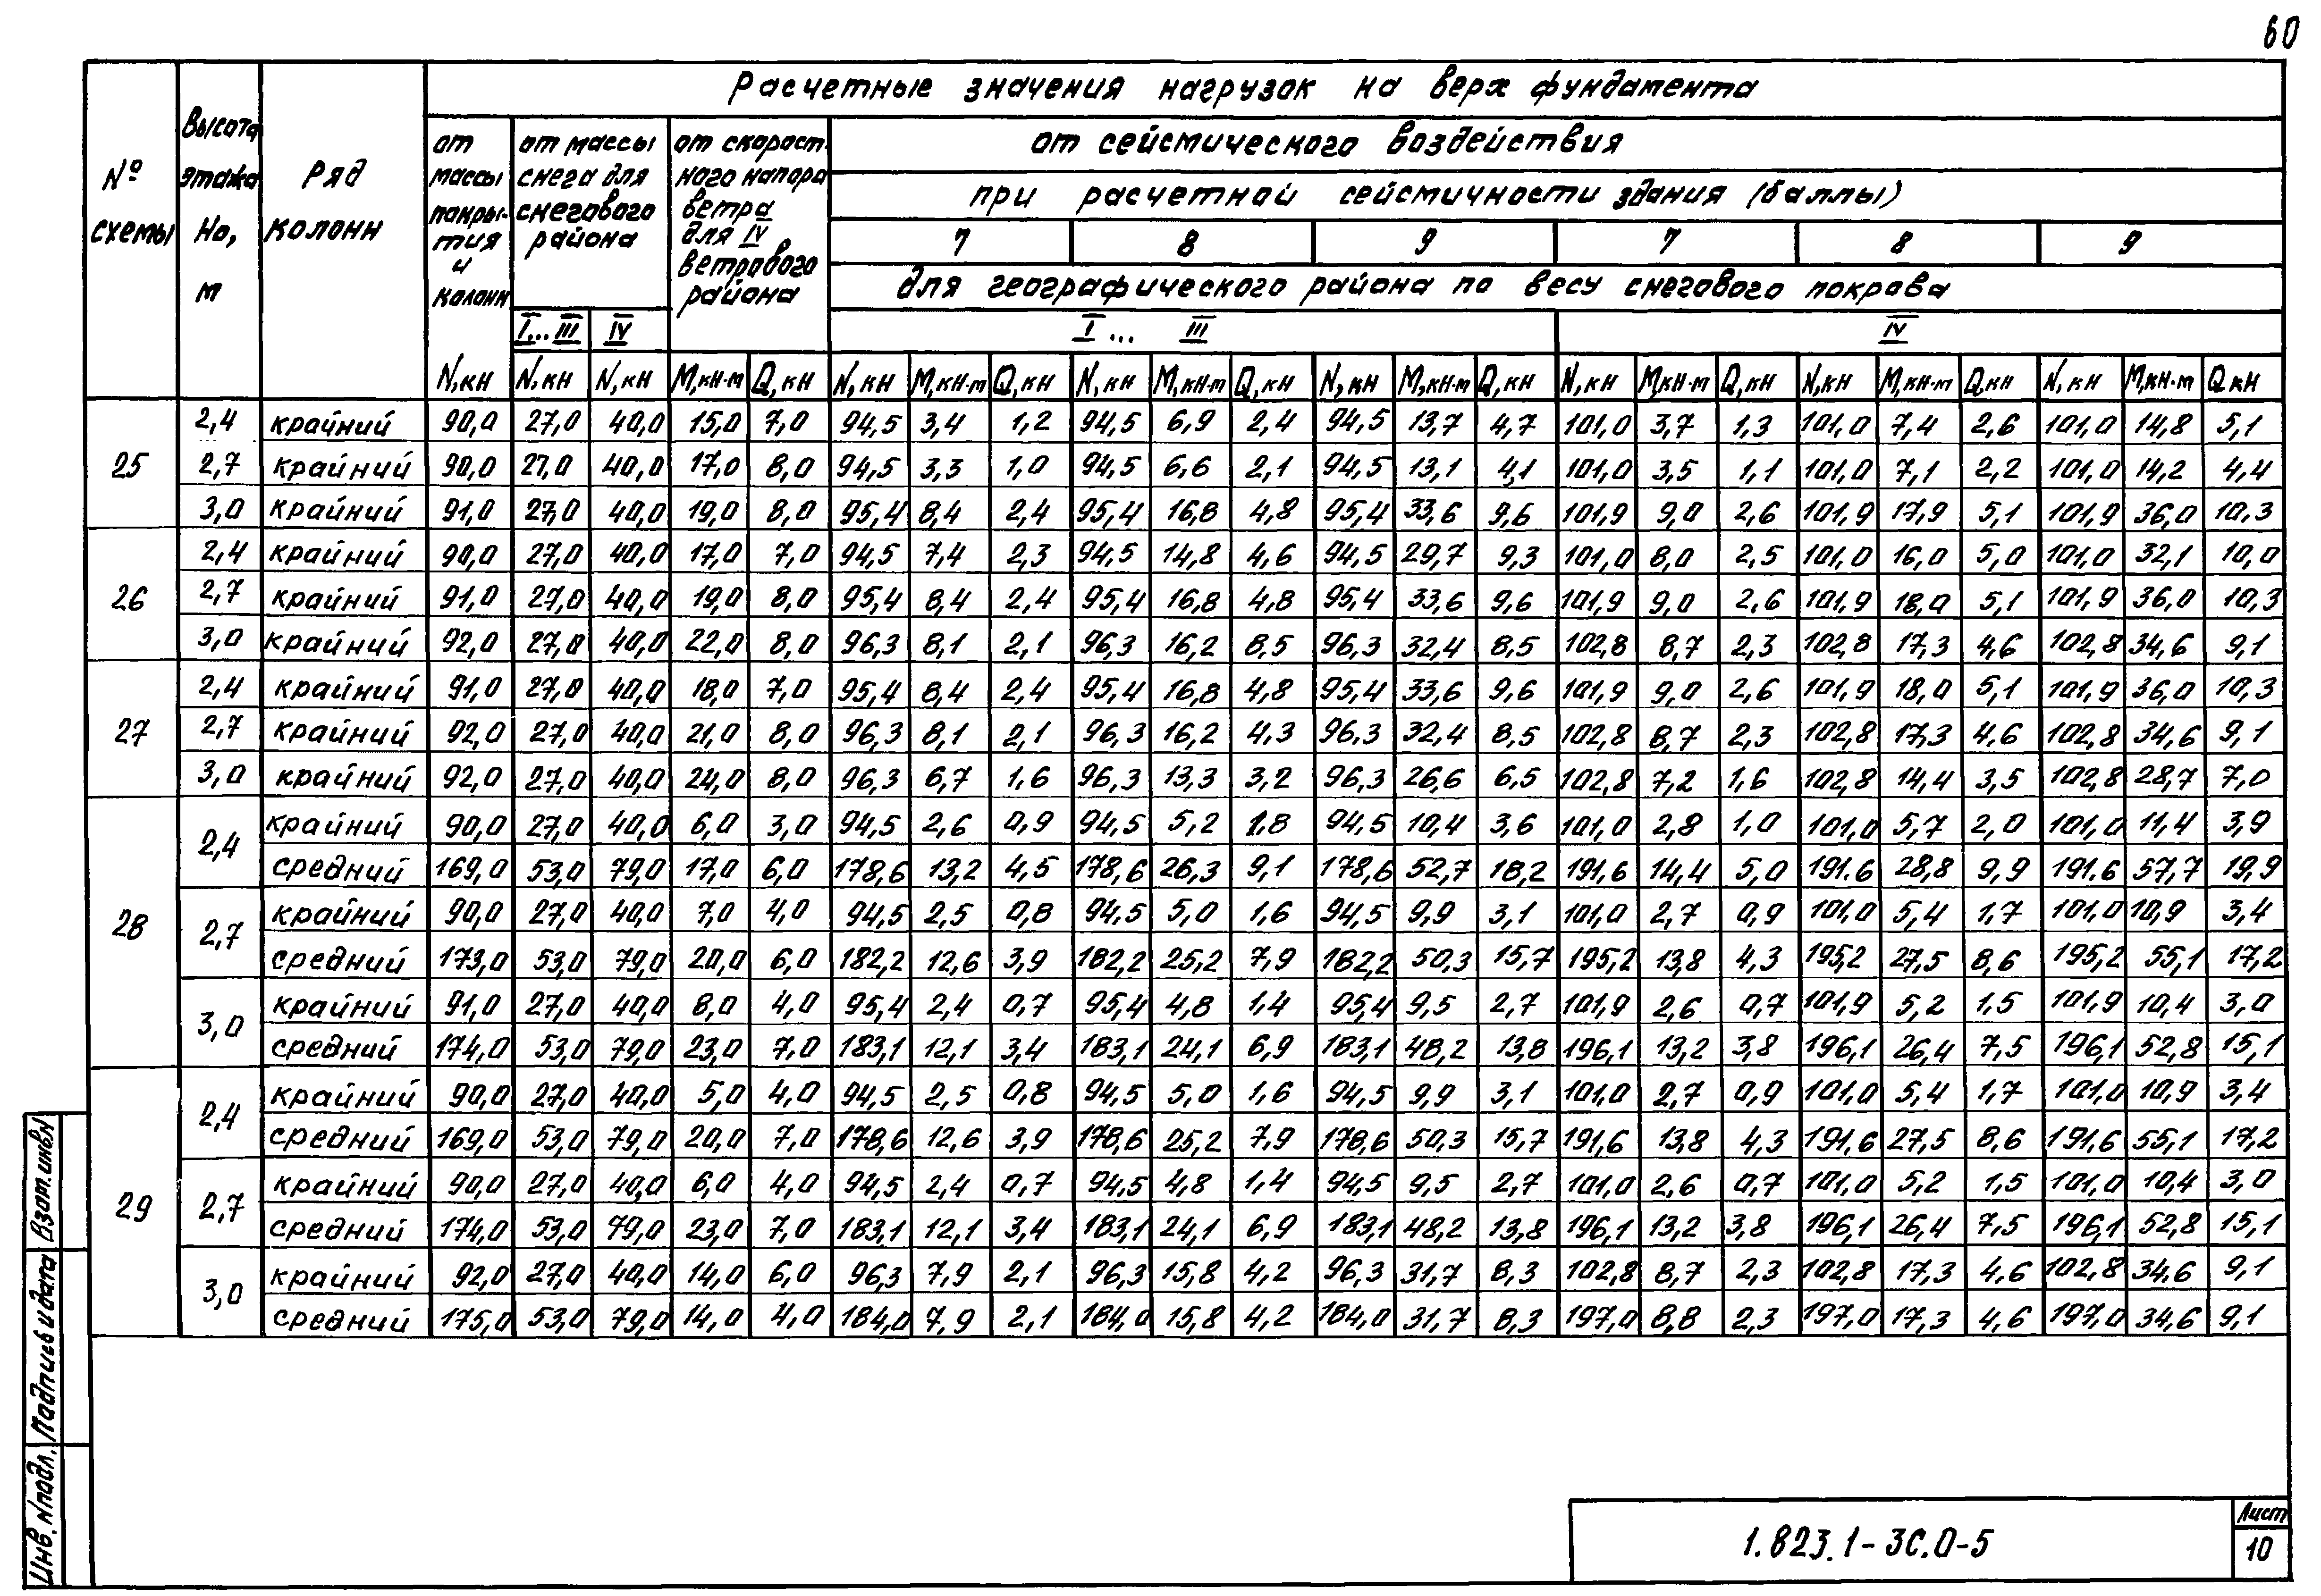 60
Расчетные значения нагрузок на верх фундамента
№ схемы
Высота этажа Но, м
Ряд колонн
от массы покрытия и колонн
от массы снега для снегового района
от скоростного напора ветра для IV ветрового района
от сейсмического воздействия
при расчетной сейсмичности здания (баллы)
7 8 9 7 8 9
для географического района по весу снегового покрова
I...III IV I... III IV
N,кН N,кН N,кН M,кН·м Q,кН N,кН M,кН·м Q,кН N,кН M,кН·м Q,кН N,кН M,кН·м Q,кН N,кН M,кН·м Q,кН N,кН M,кН·м Q,кН N,кН M,кН·м Q кН
25 2,4 крайний 90,0 27,0 40,0 15,0 7,0 94,5 3,4 1,2 94,5 6,9 2,4 94,5 13,7 4,7 101,0 3,7 1,3 101,0 7,4 2,6 101,0 14,8 5,1
2,7 крайний 90,0 27,0 40,0 17,0 8,0 94,5 3,3 1,0 94,5 6,6 2,1 94,5 13,1 4,1 101,0 3,5 1,1 101,0 7,1 2,2 101,0 14,2 4,4
3,0 крайний 91,0 27,0 40,0 19,0 8,0 95,4 8,4 2,4 95,4 16,8 4,8 95,4 33,6 9,6 101,9 9,0 2,6 101,9 17,9 5,1 101,9 36,0 10,3
26 2,4 крайний 90,0 27,0 40,0 17,0 7,0 94,5 7,4 2,3 94,5 14,8 4,6 94,5 29,7 9,3 101,0 8,0 2,5 101,0 16,0 5,0 101,0 32,1 10,0
2,7 крайний 91,0 27,0 40,0 19,0 8,0 95,4 8,4 2,4 95,4 16,8 4,8 95,4 33,6 9,6 101,9 9,0 2,6 101,9 18,0 5,1 101,9 36,0 10,3
3,0 крайний 92,0 27,0 40,0 22,0 8,0 96,3 8,1 2,1 96,3 16,2 8,5 96,3 32,4 8,5 102,8 8,7 2,3 102,8 17,3 4,6 102,8 34,6 9,1
27 2,4 крайний 91,0 27,0 40,0 18,0 7,0 95,4 8,4 2,4 95,4 16,8 4,8 95,4 33,6 9,6 101,9 9,0 2,6 101,9 18,0 5,1 101,9 36,0 10,3
2,7 крайний 92,0 27,0 40,0 21,0 8,0 96,3 8,1 2,1 96,3 16,2 4,3 96,3 32,4 8,5 102,8 8,7 2,3 102,8 17,3 4,6 102,8 34,6 9,1
3,0 крайний 92,0 27,0 40,0 24,0 8,0 96,3 6,7 1,6 96,3 13,3 3,2 96,3 26,6 6,5 102,8 7,2 1,6 102,8 14,4 3,5 102,8 28,7 7,0
28 2,4 крайний 90,0 27,0 40,0 6,0 3,0 94,5 2,6 0,9 94,5 5,2 1,8 94,5 10,4 3,6 101,0 2,8 1,0 101,0 5,7 2,0 101,0 11,4 3,9
средний 169,0 53,0 79,0 17,0 6,0 178,6 13,2 4,5 178,6 26,3 9,1 178,6 52,7 18,2 191,6 14,4 5,0 191.6 28,8 9,9 191.6 57,7 19,9
2,7 крайний 90,0 27,0 40,0 7,0 4,0 94,5 2,5 0,8 94,5 5,0 1,6 94,5 9,9 3,1 101,0 2,7 0,9 101,0 5,4 1,7 101,0 10,9 3,4
средний 173,0 53,0 79,0 20,0 6,0 182,2 12,6 3,9 182,2 25,2 7,9 182,2 50,3 15,7 195,2 13,8 4,3 195,2 27,5 8,6 195,2 55,1 17,2
3,0 крайний 91,0 27,0 40,0 8,0 4,0 95,4 2,4 0,7 95,4 4,8 1,4 95,4 9,5 2,7 101,9 2,6 0,7 101,9 5,2 1,5 101,9 10,4 3,0
средний 174,0 53,0 79,0 23,0 7,0 183,1 12,1 3,4 183,1 24,1 6,9 183,1 48,2 13,8 196,1 13,2 3,8 196,1 26,4 7,5 196,1 52,8 15,1
29 2,4 крайний 90,0 27,0 40,0 5,0 4,0 94,5 2,5 0,8 94,5 5,0 1,6 94,5 9,9 3,1 101,0 2,7 0,9 101,0 5,4 1,7 101,0 10,9 3,4
средний 169,0 53,0 79,0 20,0 7,0 178,6 12,6 3,9 178,6 25,2 7,9 178,6 50,3 15,7 191,6 13,8 4,3 191,6 27,5 8,6 191,6 55,1 17,2
2,7 крайний 90,0 27,0 40,0 6,0 4,0 94,5 2,4 0,7 94,5 4,8 1,4 94,5 9,5 2,7 101,0 2,6 0,7 101,0 5,2 1,5 101,0 10,4 3,0
средний 174,0 53,0 79,0 23,0 7,0 183,1 12,1 3,4 183,1 24,1 6,9 183,1 48,2 13,8 196,1 13,2 3,8 196,1 26,4 7,5 196,1 52,8 15,1
3,0 крайний 92,0 27,0 40,0 14,0 6,0 96,3 7,9 2,1 96,3 15,8 4,2 96,3 31,7 8,3 102,8 8,7 2,3 102,8 17,3 4,6 102,8 34,6 9,1
средний 175,0 53,0 79,0 14,0 4,0 184,0 7,9 2,1 184,0 15,8 4,2 184,0 31,7 8,3 197,0 8,8 2,3 197,0 17,3 4,6 197,0 34,6 9,1
Взам.инвN
Подпись и дата
Инв.Nподл.
1.823.1-3С.0-5
Лист
10